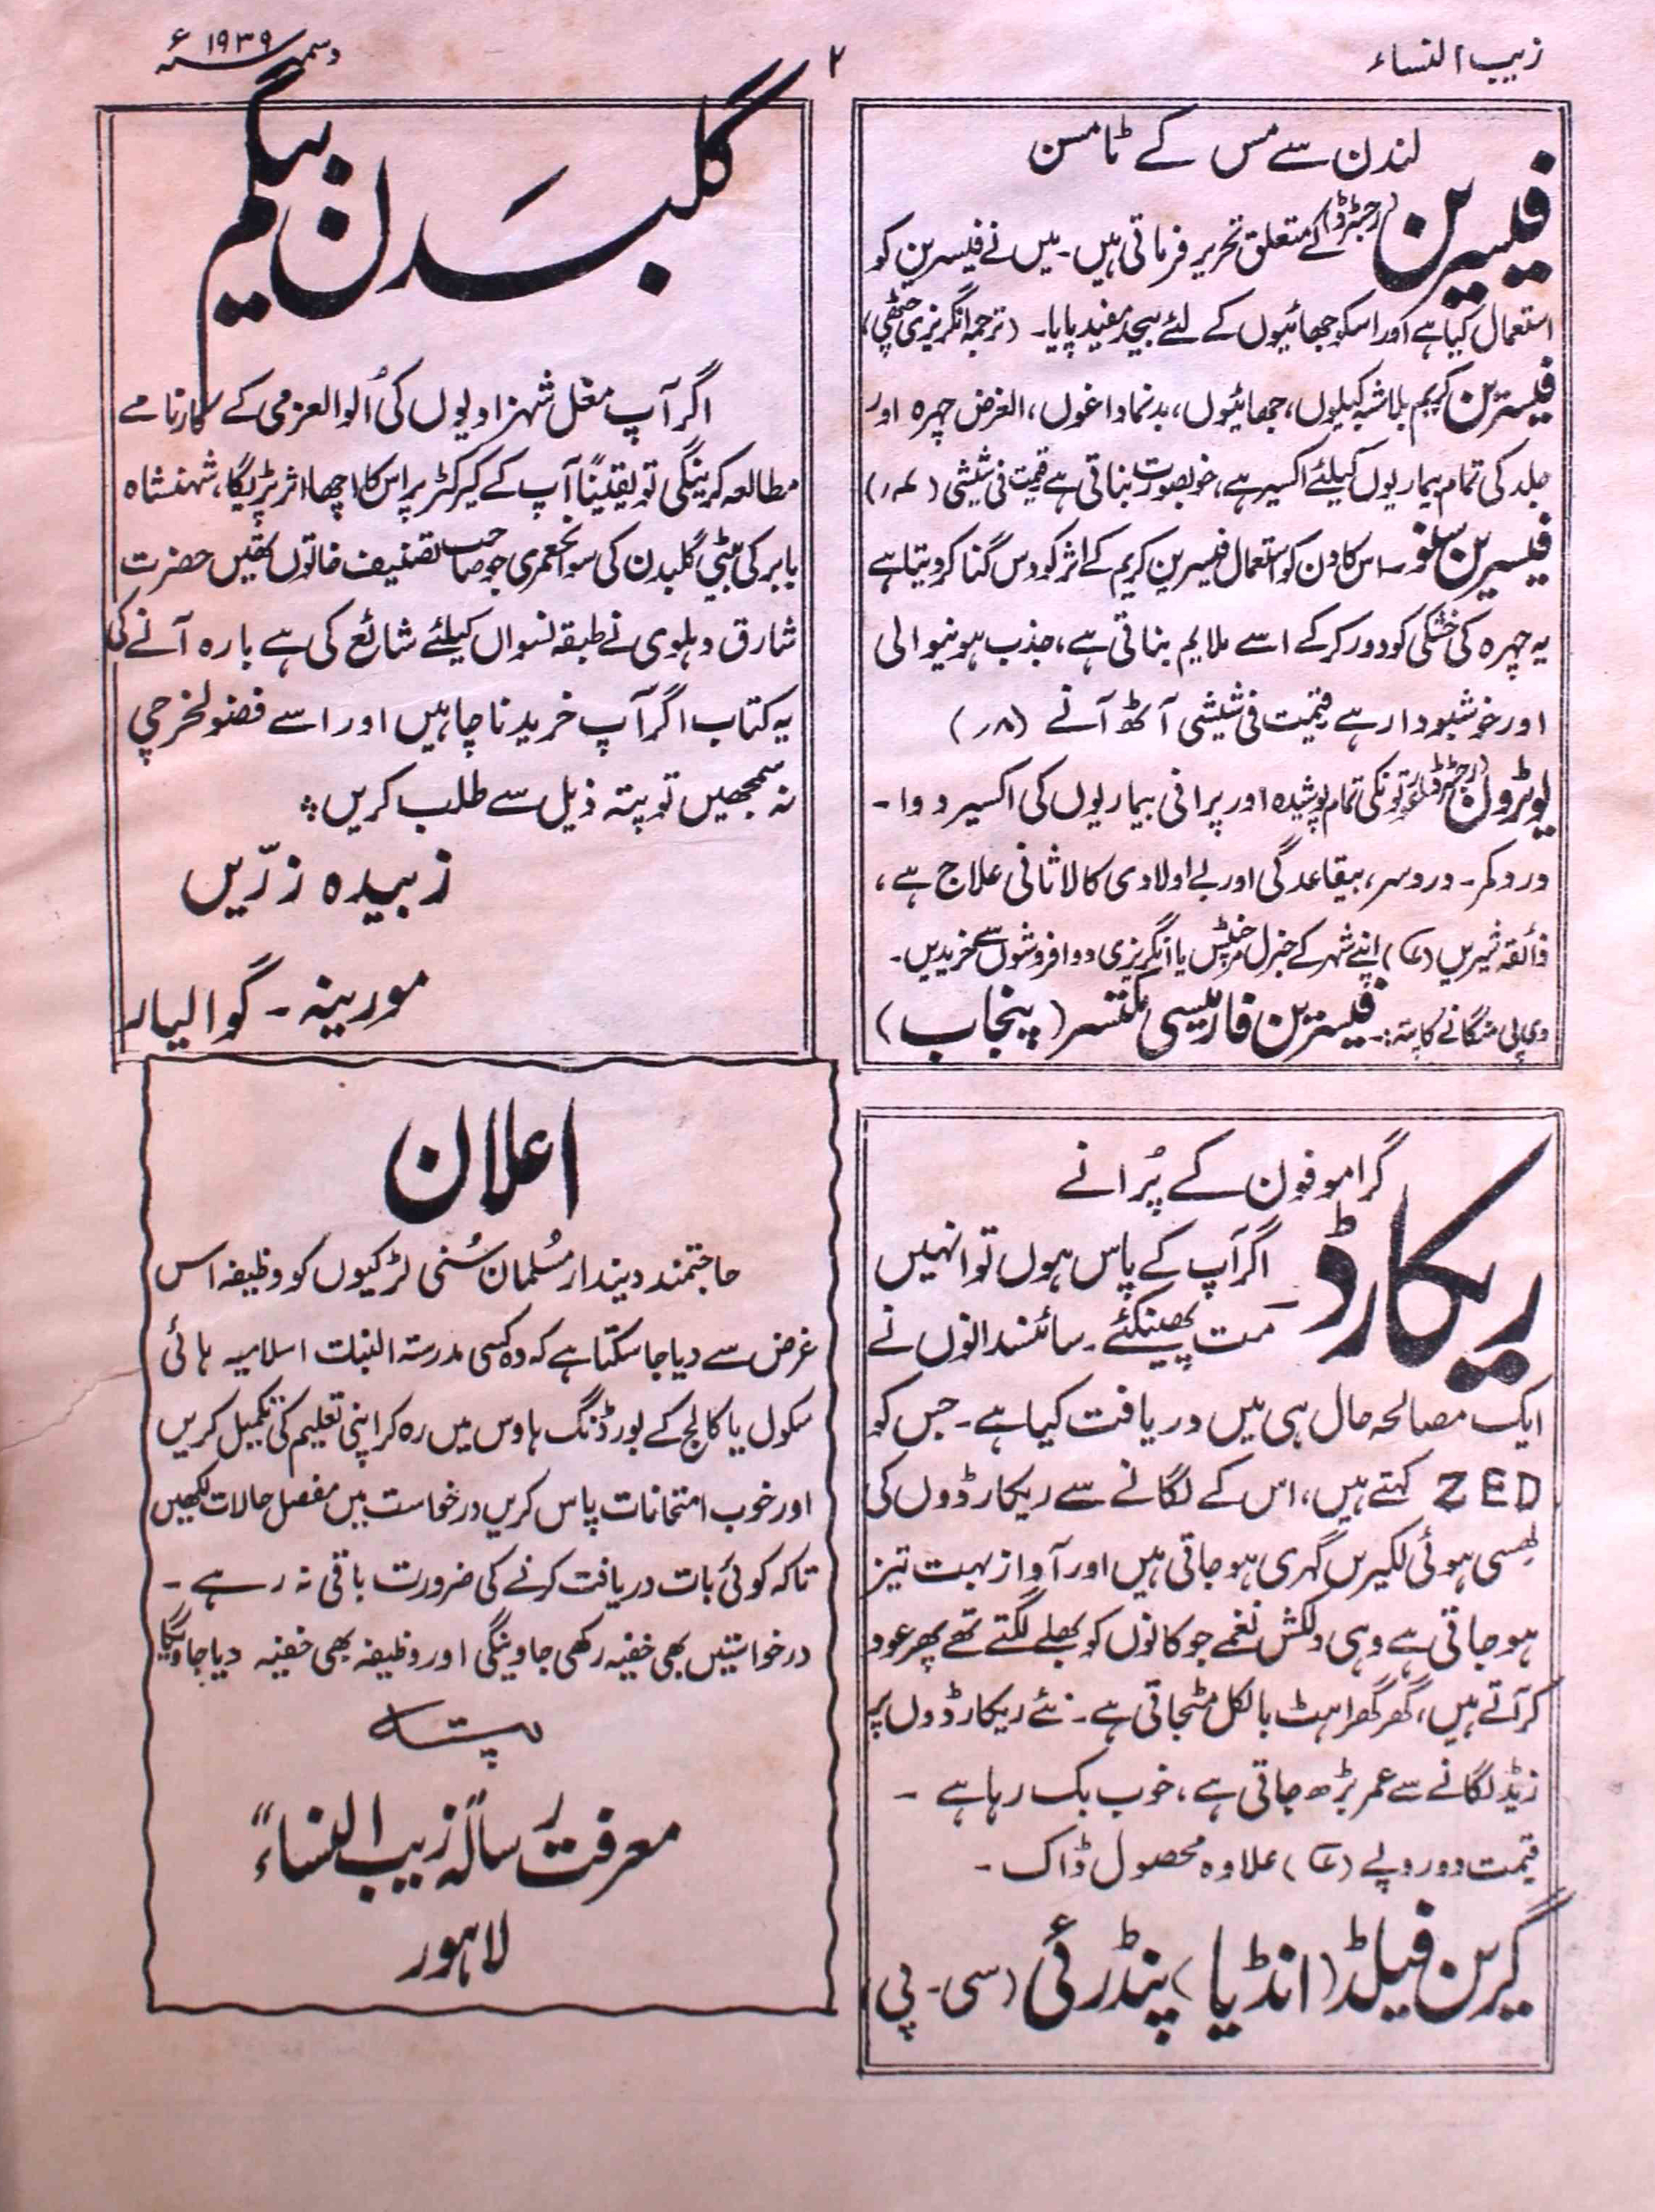 زیب النساء
۲
دسمبر ۱۹۳۹ء
لندن سے مس کے ٹامسن
فیسرین (رجسٹرڈ) کے متعلق تحریر فرماتی ہیں۔ میں نے فیسرین کو
استعمال کیا ہے اور اسکو چھائیوں کے لئے بیحد مفید پایا۔ (ترجمہ انگریزی چٹھی)
فیسرین کریم بلاشبہ کیلوں، چھائیوں، بدنما داغوں، الغرض چہرہ اور
جلد کی تمام بیماریوں کیلئے اکسیر ہے، خوبصورت بناتی ہے قیمت فی شیشی
فیسرین سنو۔ اس کا دن کو استعمال فیسرین کریم کے اثر کو دس گنا کر دیتا ہے
یہ چہرہ کی خشکی کو دور کرکے اسے ملایم بناتی ہے، جذب ہونیوالی
اور خوشبودار ہے قیمت فی شیشی آٹھ آنے (۸ر)
یوٹرول (رجسٹرڈ) عورتونکی تمام پوشیدہ اور پرانی بیماریوں کی اکسیر دوا۔
درد کمر۔ درد سر، بیقاعدگی اور بے اولادی کا لاثانی علاج ہے،
ذائقہ شیریں (عہ) اپنے شہر کے جنرل مرچنٹس یا انگریزی دوا فروشوں سے خریدیں۔
وی پی منگانے کا پتہ:۔ فیسرین فارمیسی مکتسر (پنجاب)
گرامو فون کے پُرانے
ریکارڈ
اگر آپ کے پاس ہوں تو انہیں
مت پھینکئے۔ سائنسدانوں نے
ایک مصالحہ حال ہی میں دریافت کیا ہے۔ جس کو
ZED کہتے ہیں، اس کے لگانے سے ریکارڈوں کی
گھسی ہوئی لکیریں گہری ہو جاتی ہیں اور آواز بہت تیز
ہو جاتی ہے وہی دلکش نغمے جو کانوں کو بھلے لگتے تھے پھر عود
کر آتے ہیں، گھر گھراہٹ بالکل مٹجاتی ہے۔ نئے ریکارڈوں پر
زیڈ لگانے سے عمر بڑھ جاتی ہے، خوب بک رہا ہے۔
قیمت دو روپے (عہ) علاوہ محصول ڈاک۔
گرین فیلڈ (انڈیا) پنڈرئی (سی۔ پی)
گلبدن بیگم
اگر آپ مغل شہزادیوں کی اُلوالعزمی کے کارنامے
مطالعہ کرینگی تو یقیناً آپ کے کیرکٹر پر اس کا اچھا اثر پڑیگا، شہنشاہ
بابر کی بیٹی گلبدن کی سوانحعمری جو صاحب تصنیف خاتون تھیں حضرت
شارق دہلوی نے طبقہ نسواں کیلئے شائع کی ہے بارہ آنے کی
یہ کتاب اگر آپ خریدنا چاہیں اور اسے فضولخرچی
نہ سمجھیں تو پتہ ذیل سے طلب کریں
زبیدہ زرّیں
مورینہ۔ گوالیار
اعلان
حاجتمند دیندار مُسلمان سُنی لڑکیوں کو وظیفہ اس
غرض سے دیا جا سکتا ہے کہ وہ کسی مدرستہ البنات اسلامیہ ہائی
سکول یا کالج کے بورڈنگ ہاوس میں رہ کر اپنی تعلیم کی تکمیل کریں
اور خوب امتحانات پاس کریں درخواست میں مفصل حالات لکھیں
تاکہ کوئی بات دریافت کرنے کی ضرورت باقی نہ رہے۔
درخواستیں بھی خفیہ رکھی جاوینگی اور وظیفہ بھی خفیہ دیا جاویگا
پتہ
معرفت رسالہ "زیب النساء"
لاہور